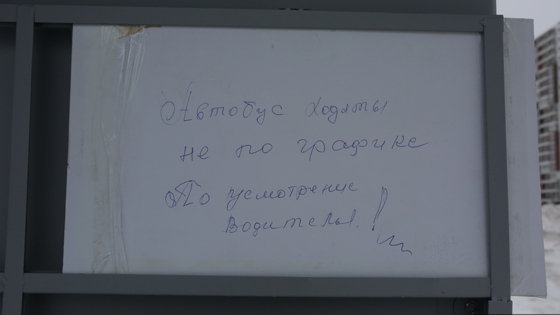 Автобус ходяты
не по графике
По усмотрение
водителя. !